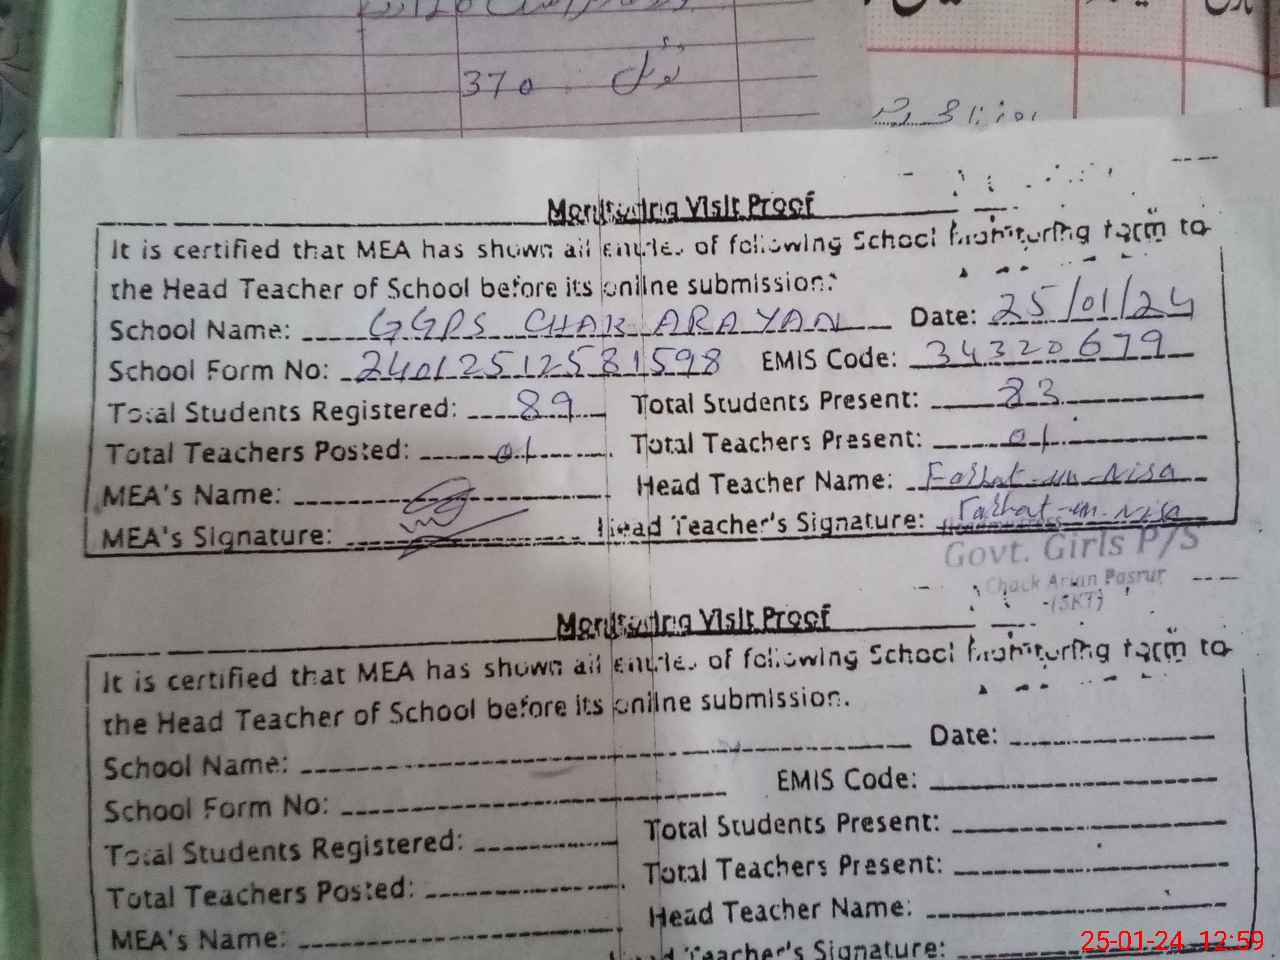 370 ٹوٹل
Monitoring Visit Proof
It is certified that MEA has shown all entries of following School Monitoring form to
the Head Teacher of School before its online submission.
School Name: GGPS CHAK ARAYAN Date: 25/01/24
School Form No: 24012512581598 EMIS Code: 34320679
Total Students Registered: 89 Total Students Present: 83
Total Teachers Posted: 01 Total Teachers Present: 01
MEA's Name: Head Teacher Name: Farhat-un-Nisa
MEA's Signature: Head Teacher's Signature: Farhat-un-Nisa
Headmistress
Govt. Girls P/S
Chack Arian Pasrur
(SKT)
Monitoring Visit Proof
It is certified that MEA has shown all entries of following School Monitoring form to
the Head Teacher of School before its online submission.
School Name: Date:
School Form No: EMIS Code:
Total Students Registered: Total Students Present:
Total Teachers Posted: Total Teachers Present:
MEA's Name: Head Teacher Name:
Head Teacher's Signature:
25-01-24 12:59